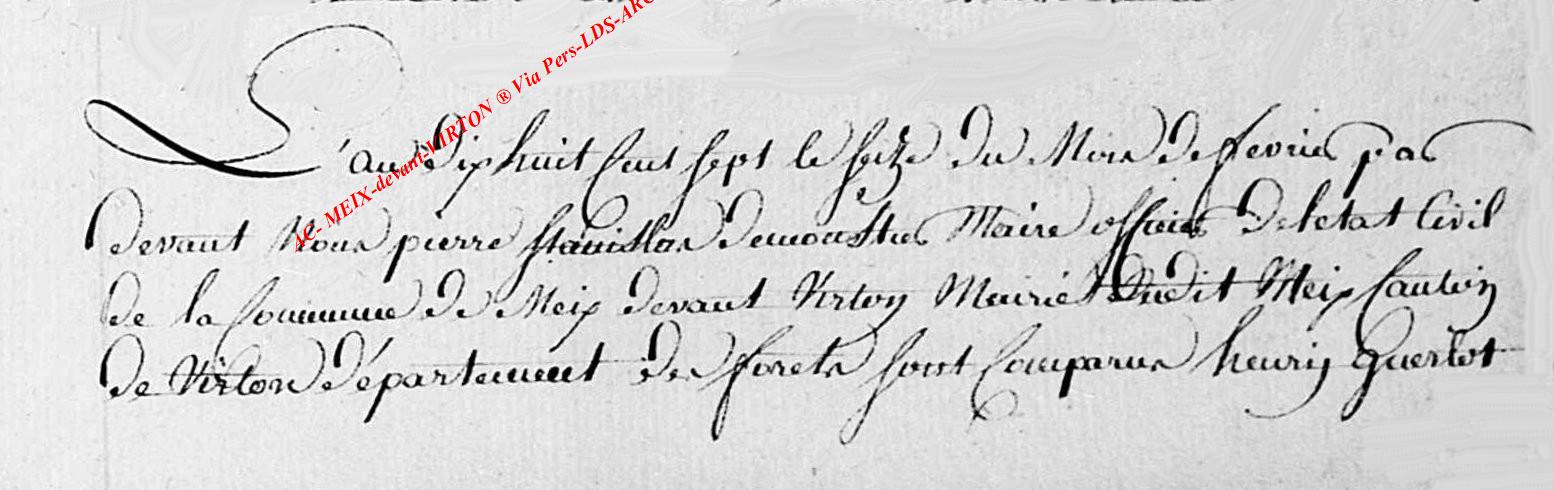 AC- MEIX-devant-VIRTON ® Via Pers-LDS-ARC
L'an dix huit Cent sept le seize du Mois de fevrier par
devant Nous pierre Stanislas Demoustier Maire officier De letat Civil
de la Commune de Meix devant Virton Mairie Dudit Meix Canton
de Virton département des forets sont Comparus henry Guerlot